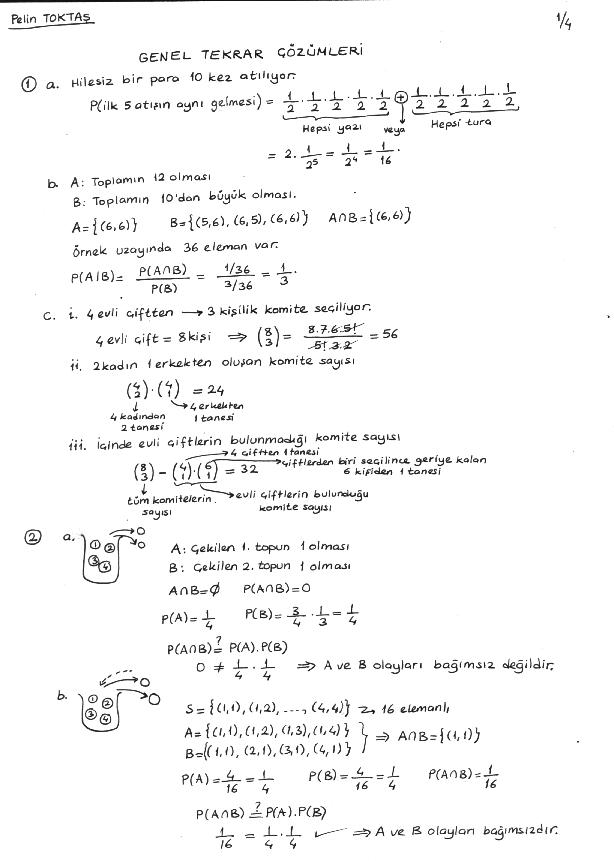 Pelin TOKTAŞ
1/4
GENEL TEKRAR ÇÖZÜMLERİ
① a. Hilesiz bir para 10 kez atılıyor.
P(ilk 5 atışın aynı gelmesi) = 1/2 . 1/2 . 1/2 . 1/2 . 1/2 ⊕ 1/2 . 1/2 . 1/2 . 1/2 . 1/2
Hepsi yazı veya Hepsi tura
= 2 . 1/2⁵ = 1/2⁴ = 1/16 .
b. A: Toplamın 12 olması
B: Toplamın 10'dan büyük olması.
A={(6,6)} B={(5,6), (6,5), (6,6)} A∩B={(6,6)}
örnek uzayında 36 eleman var.
P(A|B)= P(A∩B)/P(B) = 1/36 / 3/36 = 1/3 .
c. i. 4 evli çiftten → 3 kişilik komite seçiliyor.
4 evli çift = 8 kişi ⇒ (8 3) = 8.7.6.5!/5!.3.2 = 56
ii. 2 kadın 1 erkekten oluşan komite sayısı
(4 2) . (4 1) = 24
4 kadından 2 tanesi
4 erkekten 1 tanesi
iii. İçinde evli çiftlerin bulunmadığı komite sayısı
4 çiftten 1 tanesi
(8 3) - (4 1) . (6 1) = 32
çiftlerden biri seçilince geriye kalan
6 kişiden 1 tanesi
tüm komitelerin sayısı
evli çiftlerin bulunduğu
komite sayısı
② a. ① ② ③ ④
A: Çekilen 1. topun 1 olması
B: Çekilen 2. topun 1 olması
A∩B=∅ P(A∩B)=0
P(A)= 1/4 P(B)= 3/4 . 1/3 = 1/4
P(A∩B) ?= P(A).P(B)
0 ≠ 1/4 . 1/4 ⇒ A ve B olayları bağımsız değildir.
b. ① ② ③ ④
S={(1,1), (1,2), ..., (4,4)} → 16 elemanlı
A={(1,1), (1,2), (1,3), (1,4)}
B={(1,1), (2,1), (3,1), (4,1)} } ⇒ A∩B={(1,1)}
P(A)= 4/16 = 1/4 P(B)= 4/16 = 1/4 P(A∩B)= 1/16
P(A∩B) ?= P(A).P(B)
1/16 = 1/4 . 1/4 ✓ ⇒ A ve B olayları bağımsızdır.